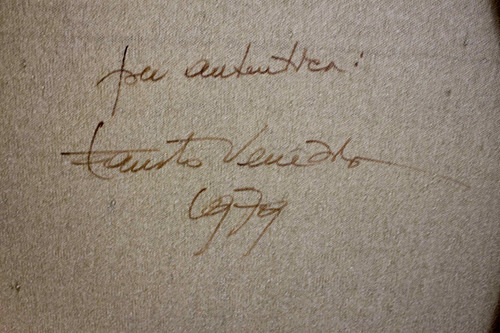 per autentica:
Fausto Venedro
1979